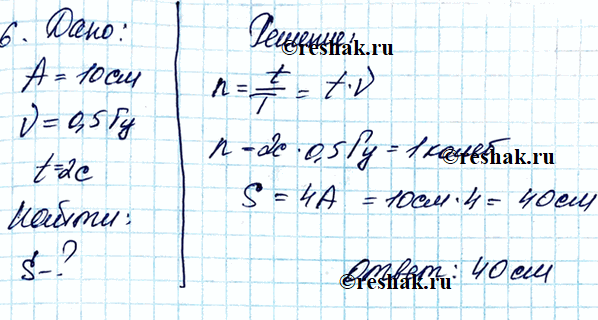 6. Дано:
A = 10см
ν = 0,5Гц
t=2c
Найти:
S-?
Решение:
©reshak.ru
n = t/T = t·ν
n - 2c · 0,5Гц = 1 колеб
©reshak.ru
S = 4A = 10см·4 = 40см
Ответ: 40см
©reshak.ru